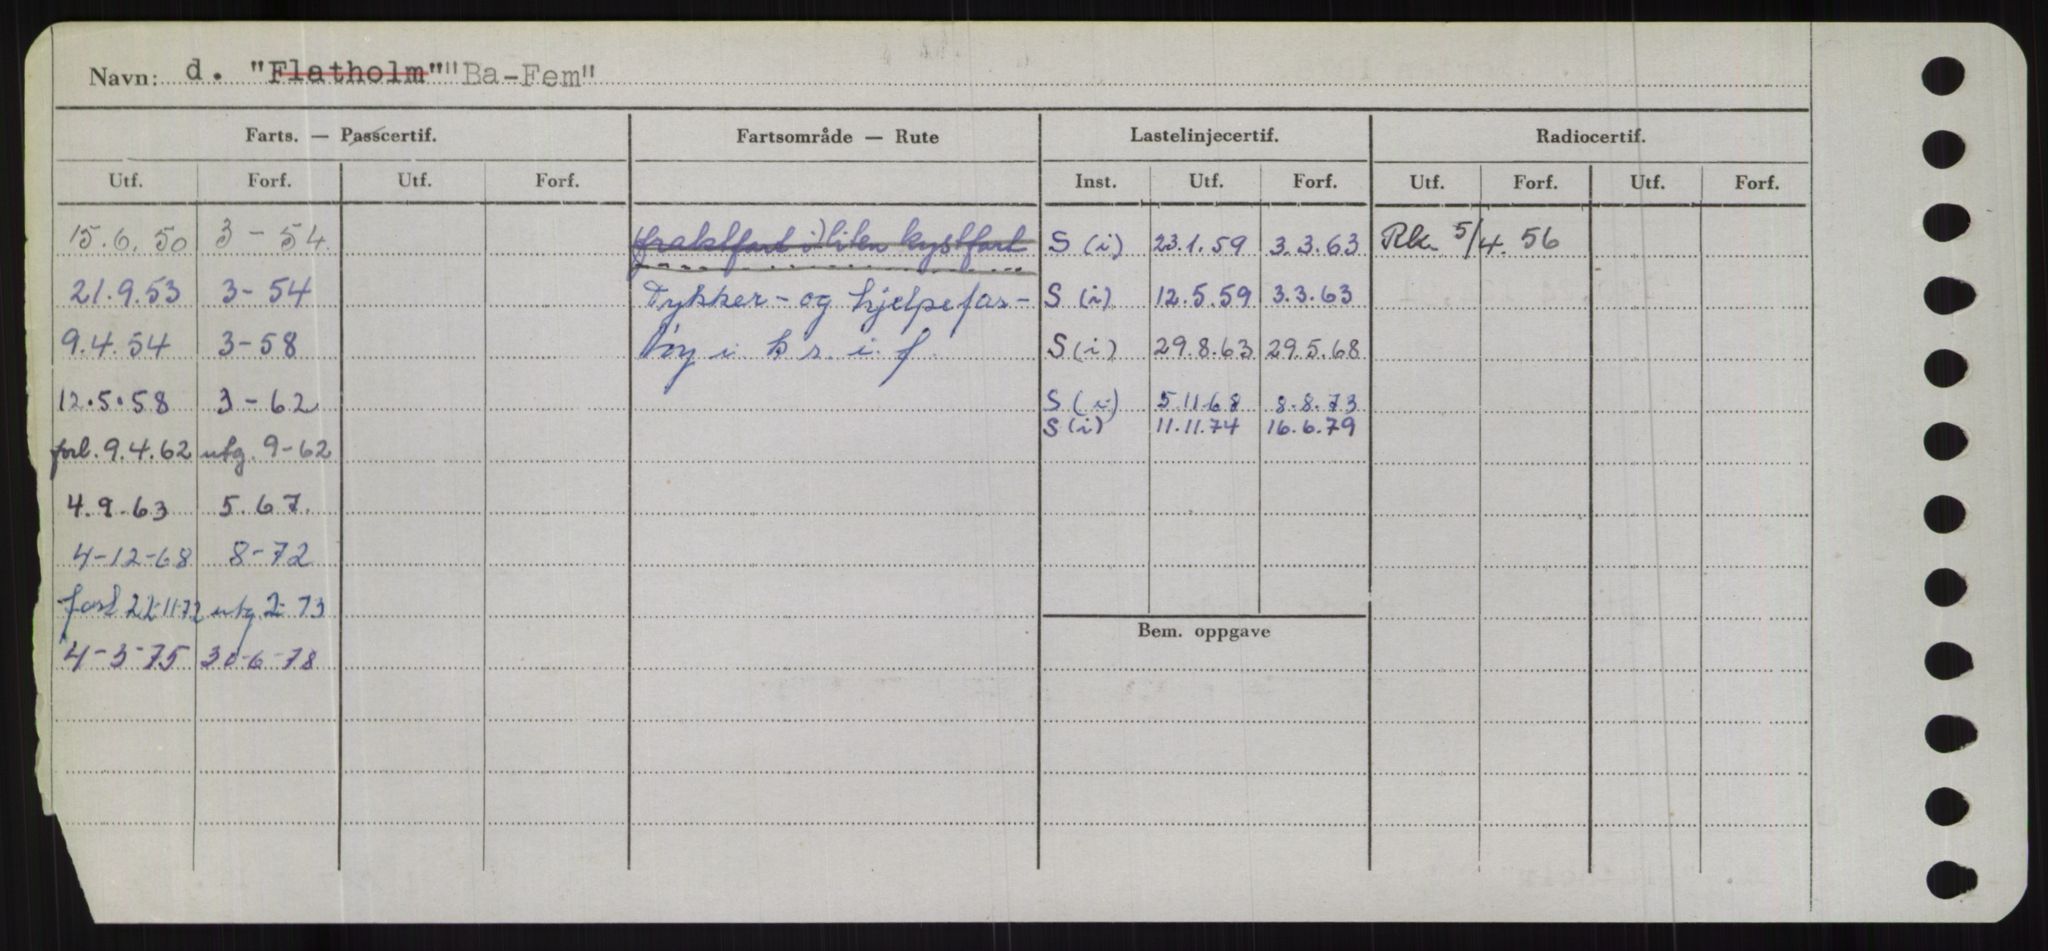 Navn: d. "Flatholm" "Ba-Fem"
Farts. — Passcertif. Fartsområde — Rute Lastelinjecertif. Radiocertif.
Utf. Forf. Utf. Forf. Inst. Utf. Forf. Utf. Forf. Utf. Forf.
15.6.50 3-54. (fraktfart i) liten kystfart S (i) 23.1.59 3.3.63 Rk. 5/4.56
21.9.53 3-54 Dykker- og hjelpefar- S (i) 12.5.59 3.3.63
9.4.54 3-58 töy i k s. i. f. S (i) 29.8.63 29.5.68
12.5.58 3-62 S (i) 5.11.68 8.8.73
S (i) 11.11.74 16.6.79
forl. 9.4.62 utg. 9-62
4.9.63 5.67.
4-12-68 8-72
forl 22-11-72 utg. 2-73
Bem. oppgave
4-3-75 30-6-78